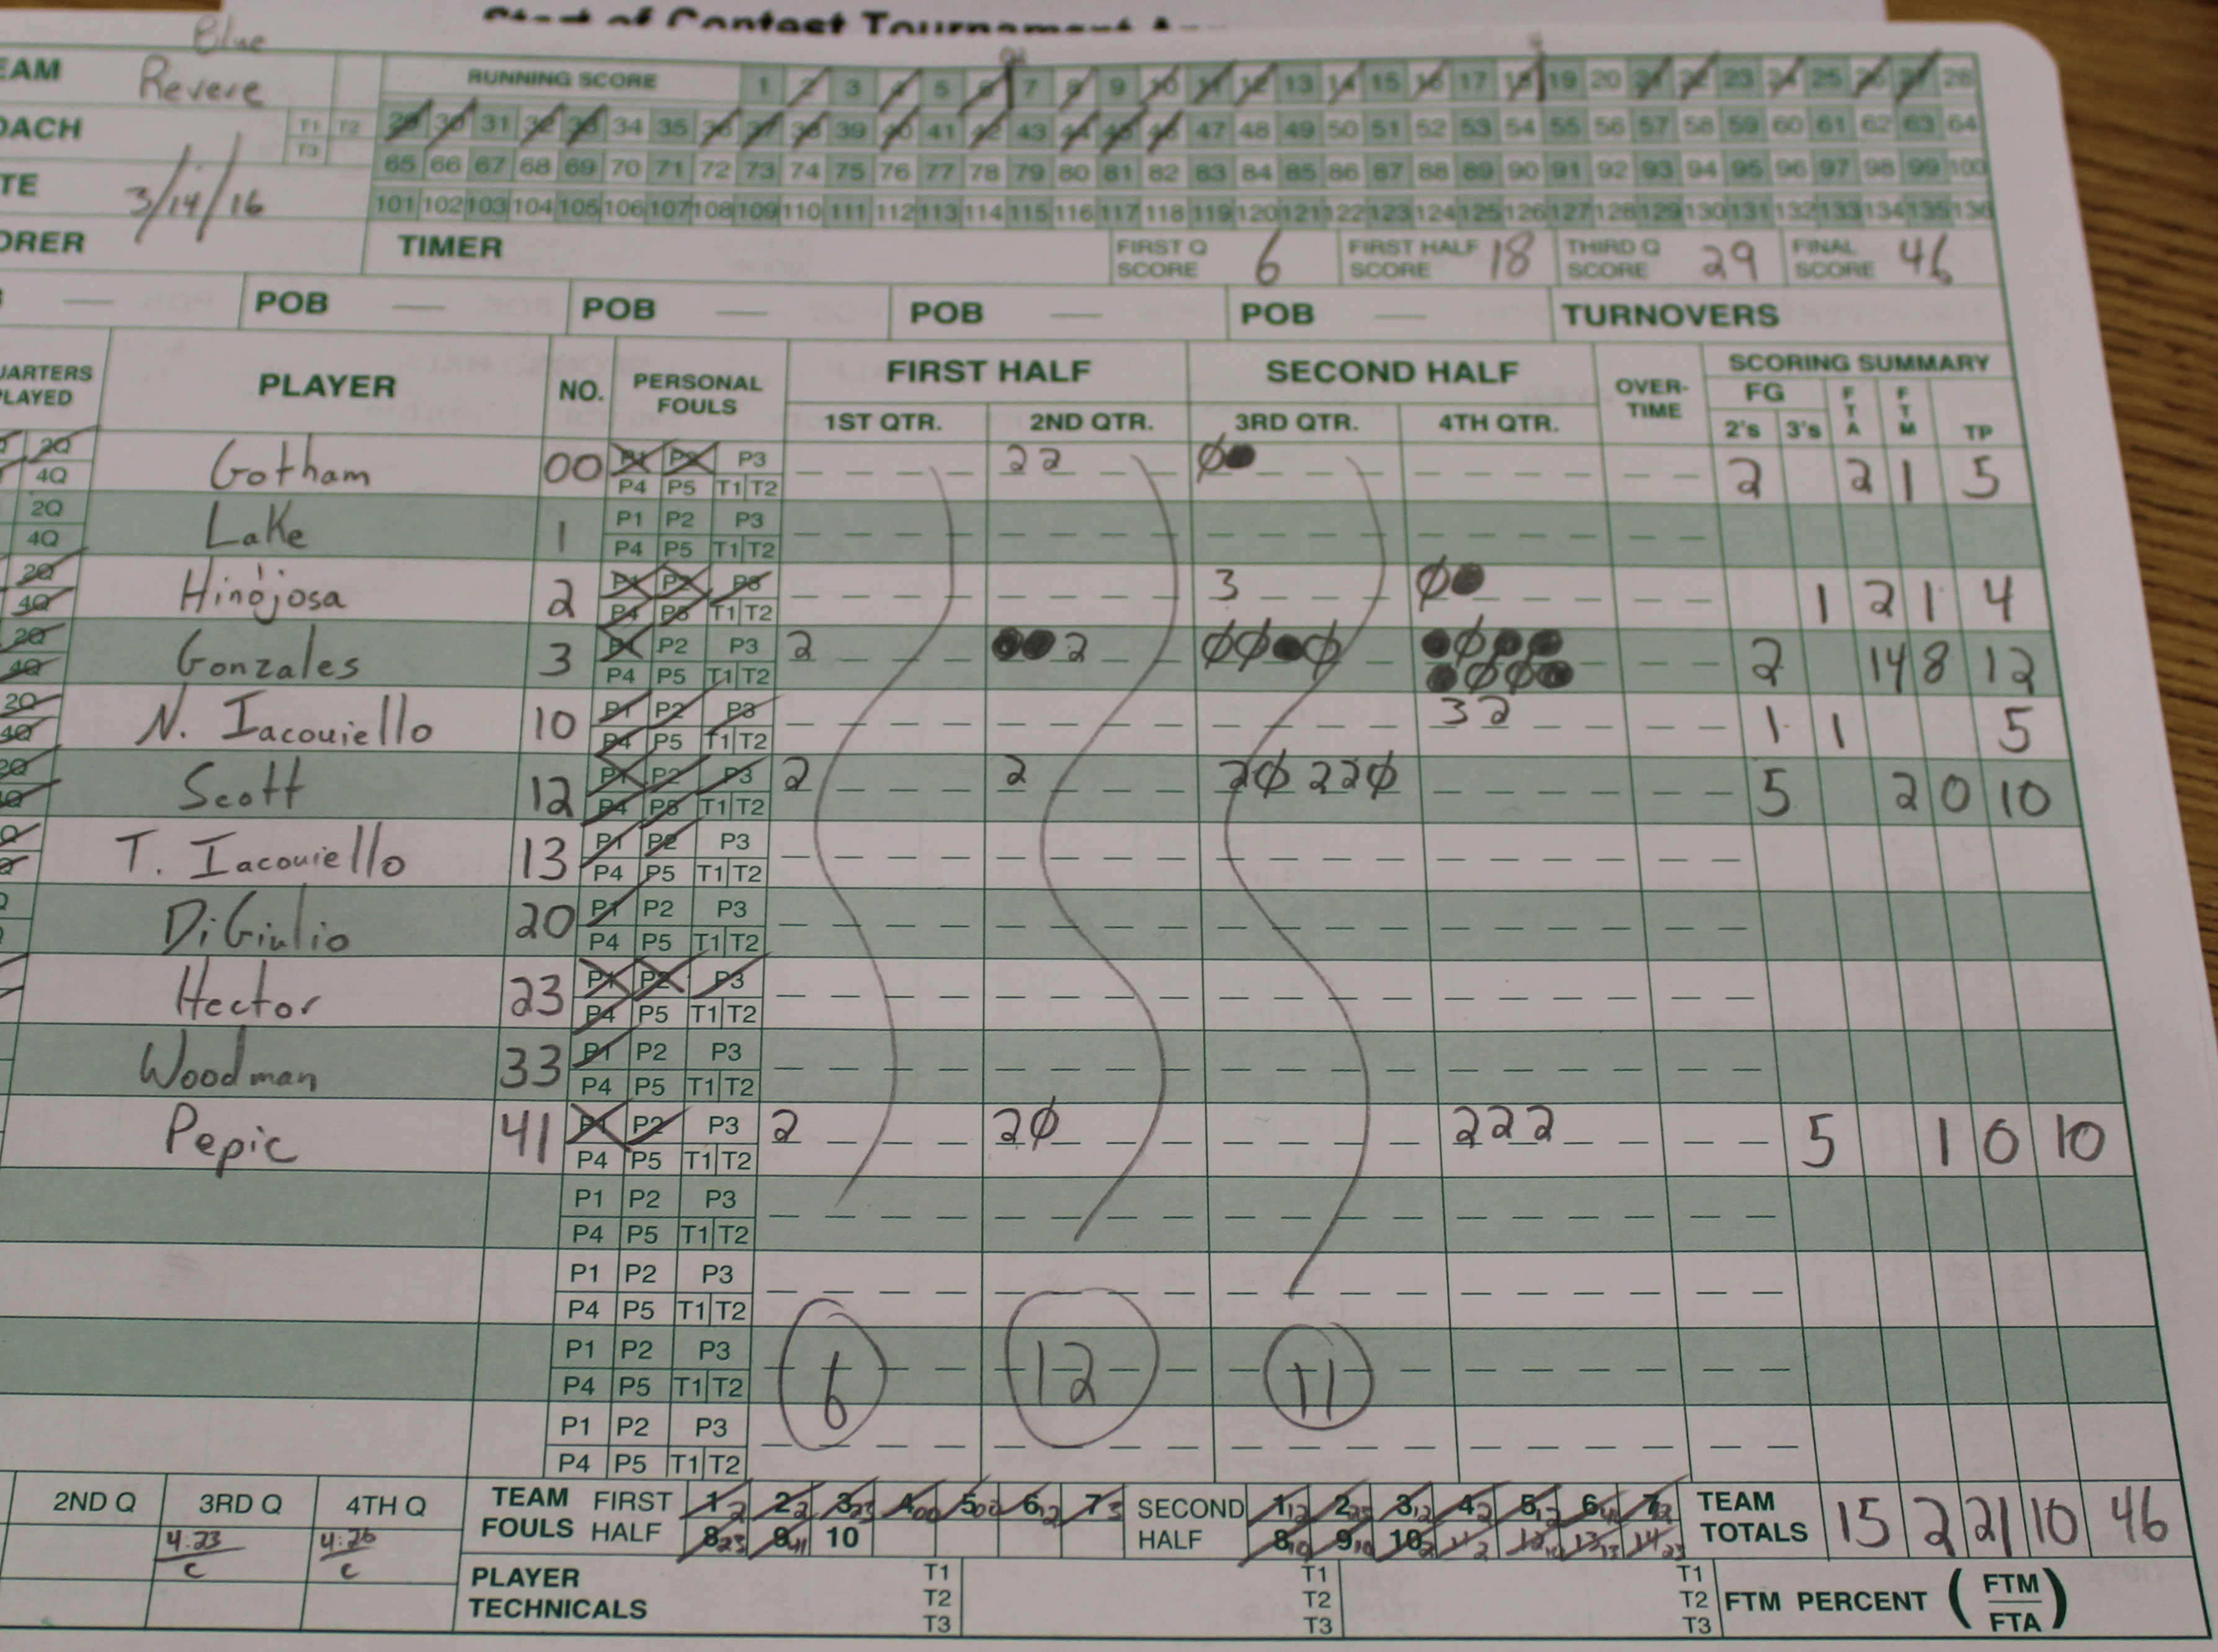 Start of Contest Tournament
Blue
EAM Revere
RUNNING SCORE 1 2 3 4 5 6 7 8 9 10 11 12 13 14 15 16 17 18 19 20 21 22 23 24 25 26 27 28
OACH T1 T2 T3
29 30 31 32 33 34 35 36 37 38 39 40 41 42 43 44 45 46 47 48 49 50 51 52 53 54 55 56 57 58 59 60 61 62 63 64
65 66 67 68 69 70 71 72 73 74 75 76 77 78 79 80 81 82 83 84 85 86 87 88 89 90 91 92 93 94 95 96 97 98 99 100
TE 3/14/16
101 102 103 104 105 106 107 108 109 110 111 112 113 114 115 116 117 118 119 120 121 122 123 124 125 126 127 128 129 130 131 132 133 134 135 136
ORER TIMER FIRST Q SCORE 6 FIRST HALF SCORE 18 THIRD Q SCORE 29 FINAL SCORE 46
— POB — POB — POB — POB — TURNOVERS
UARTERS PLAYED PLAYER NO. PERSONAL FOULS FIRST HALF SECOND HALF OVER-TIME SCORING SUMMARY
1ST QTR. 2ND QTR. 3RD QTR. 4TH QTR. FG 2's 3's FTA FTM TP
2Q 4Q Gotham 00 P1 P2 P3 P4 P5 T1 T2 22 0 2 2 1 5
2Q 4Q Lake 1 P1 P2 P3 P4 P5 T1 T2
2Q 4Q Hinojosa 2 P1 P2 P3 P4 P5 T1 T2 3 0 1 2 1 4
2Q 4Q Gonzales 3 P1 P2 P3 P4 P5 T1 T2 2 2 2 14 8 12
2Q 4Q N. Iacouiello 10 P1 P2 P3 P4 P5 T1 T2 32 1 1 5
2Q 4Q Scott 12 P1 P2 P3 P4 P5 T1 T2 2 2 2Ø 22Ø 5 2 0 10
T. Iacouiello 13 P1 P2 P3 P4 P5 T1 T2
DiGiulio 20 P1 P2 P3 P4 P5 T1 T2
Hector 23 P1 P2 P3 P4 P5 T1 T2
Woodman 33 P1 P2 P3 P4 P5 T1 T2
Pepic 41 P1 P2 P3 P4 P5 T1 T2 2 2Ø 222 5 1 0 10
P1 P2 P3 P4 P5 T1 T2
P1 P2 P3 P4 P5 T1 T2
P1 P2 P3 P4 P5 T1 T2 6 12 11
P1 P2 P3 P4 P5 T1 T2
2ND Q 3RD Q 4TH Q TEAM FOULS FIRST HALF 1 2 3 4 5 6 7 SECOND HALF 1 2 3 4 5 6 7 TEAM TOTALS 15 2 21 10 46
4:23 C 4:26 C 8 9 10 8 9 10 11 12 13 14
PLAYER TECHNICALS T1 T2 T3 T1 T2 T3 T1 T2 T3 FTM PERCENT (FTM/FTA)